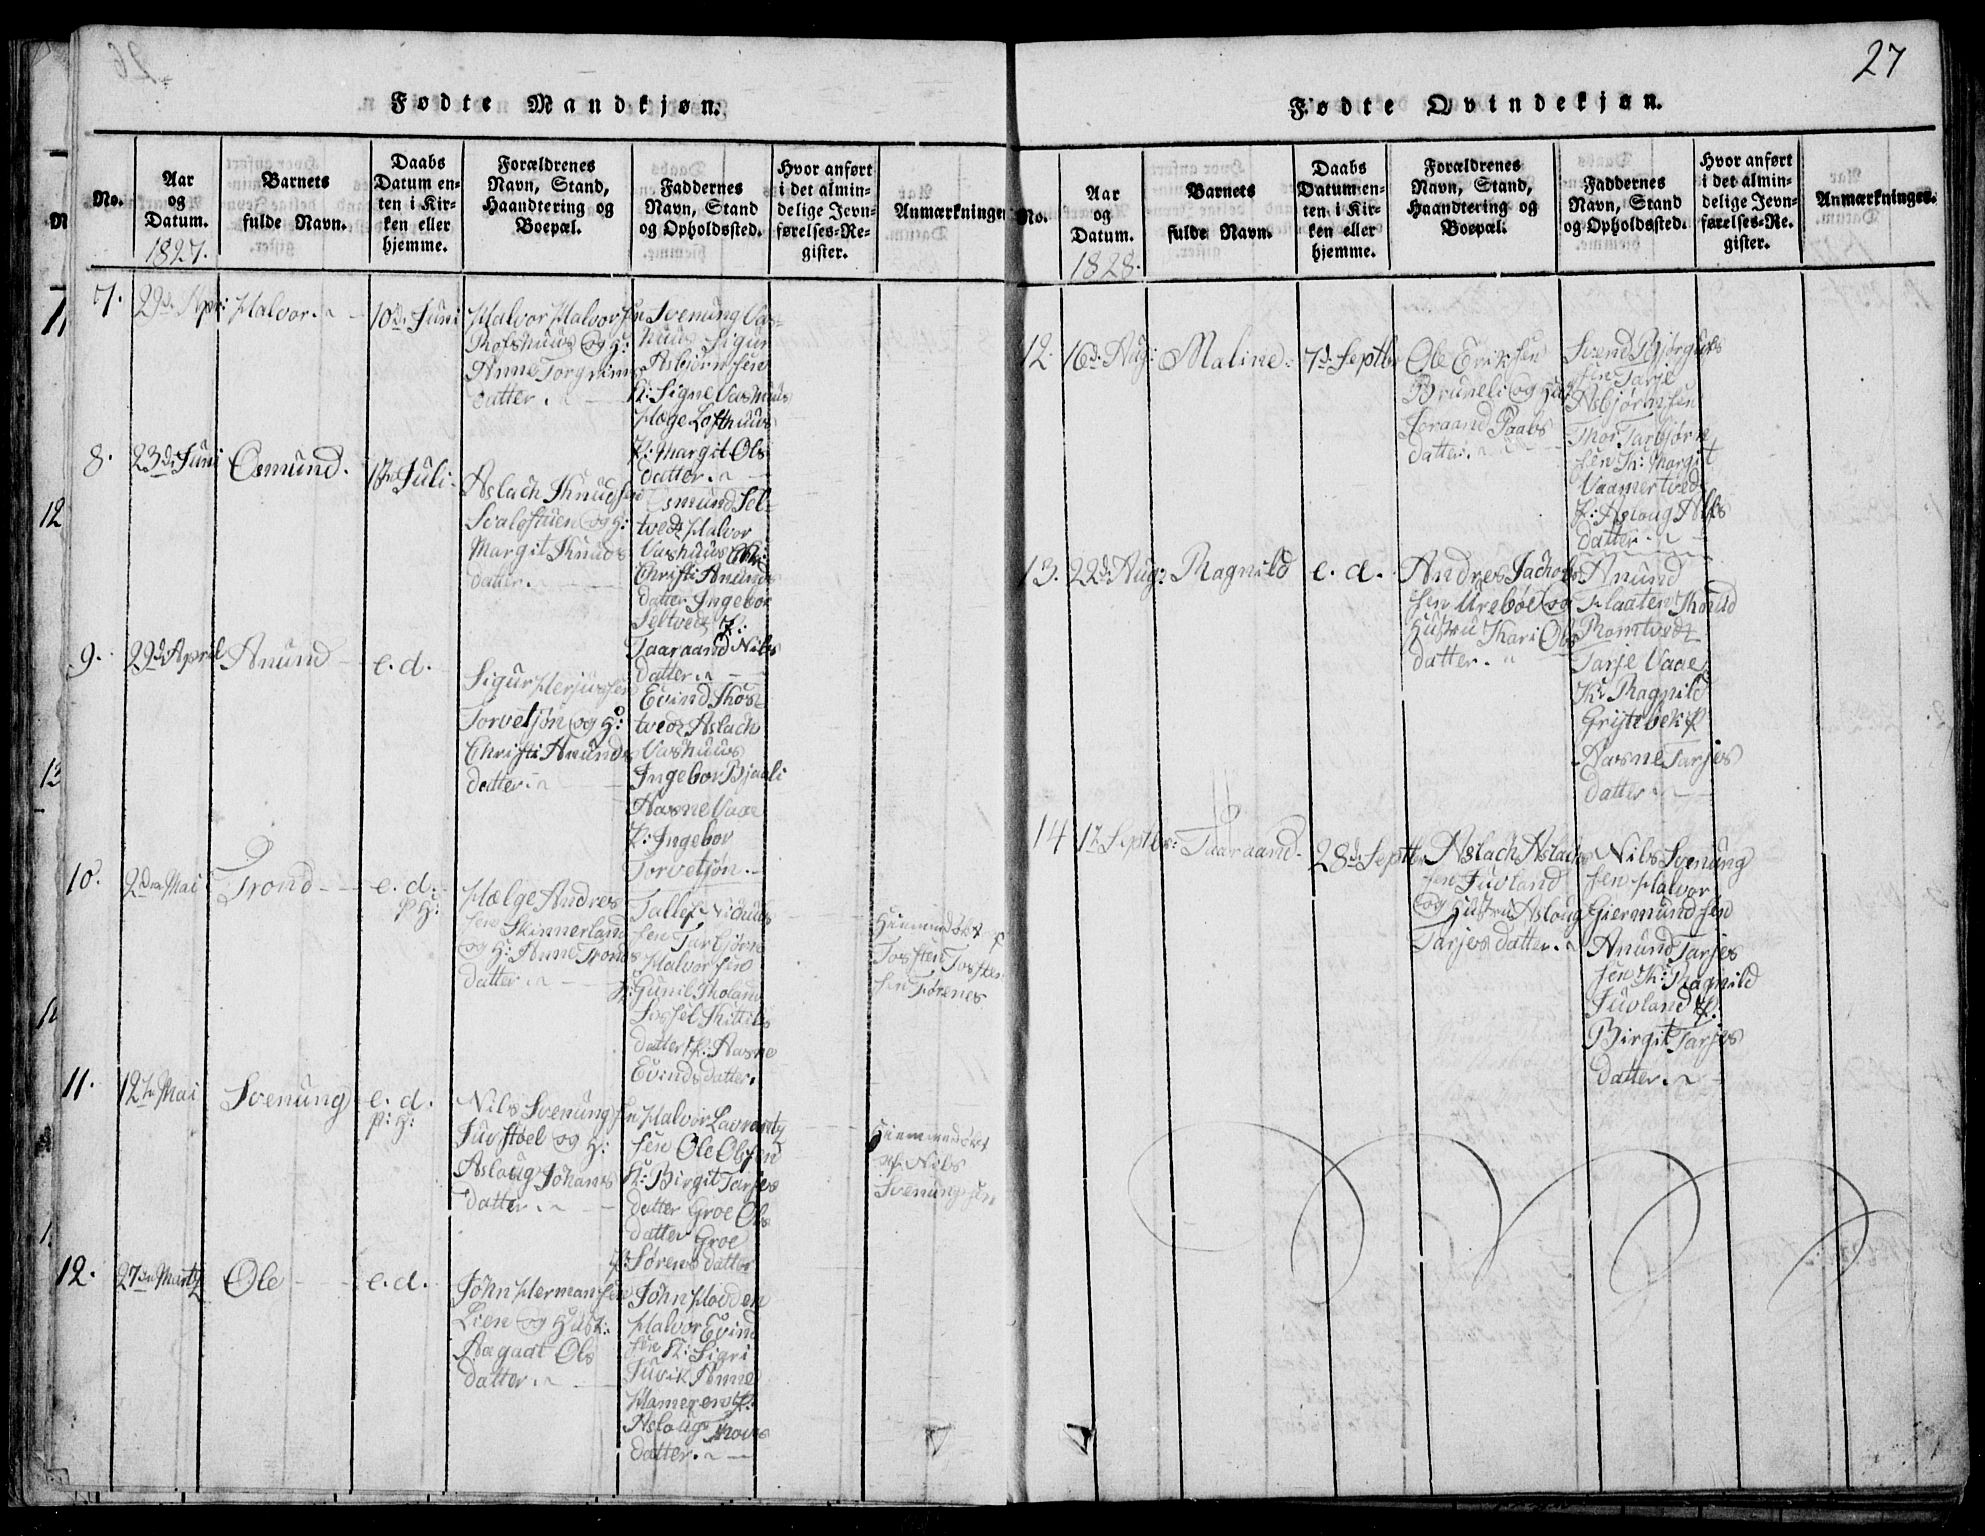 27
Fødte Mandkjøn.
No.
Aar
og
Datum.
1827.
Barnets
fulde Navn.
Daabs
Datum en-
ten i Kir-
ken eller
hjemme.
Forældrenes
Navn, Stand,
Haandtering og
Boepæl.
Faddernes
Navn, Stand
og Opholdssted.
Hvor anført
i det almin-
delige Jevn-
førelses-Re-
gister.
Anmærkninger
7.
29d. Apr:
Halvor.
10d. Juni
Halvor Halvorsen
Rofshuus og H:
Anne Torgrims
datter.
Svenung Vas-
huus Sigur
Asbjørnsen
K: Signe Vashuus
Høge Lofthuus
P: Margit Ols
datter.
8.
23d. Juni
Osmund.
Juli.
Aslach Knudsen
og H:
Margit Knuds
datter.
Osmund Sel-
tvedt Halvor
Vashuus
Christi Anunds
datter Ingebor
Seltvedt P:
Taaraand Nils
datter.
9.
29d. April
Anund
e. d.
Sigur Herjussen
Torvetjøn og H:
Christi Anunds
datter
Evind Skos-
tvedt Aslach
Vashuus
Ingebor Bjaali
Aasne Vaae
P: Ingebor
Torvetjøn.
10.
2den Mai
Trond
e. d.
P H:
Hælge Andres
sen Skinnerland
og H: Anne Tronds
datter
Tallef Nichuls
sen Tarbjørn
Halvorsen
K: Gunil Roland
Sissel Kittils
datter P: Aasne
Evindsdatter.
Hiemmedøbt af
Tosten Tosten
sen Førenes
11.
12te Mai
Svenung
e. d.
P: H:
Nils Svenungsen
Juvstøel og H:
Aslaug Johans
datter.
Halvor Lavrantz
sen Ole Olsen
K: Birgit Tarjes
datter Groe Ols
datter Groe
P: Sørens datter
Hiemmedøbt
af Nils
Svenungsen
12.
27de Martz
Ole
e. d.
John Hermansen
Lien og Hust:
Aagaat Ols
datter.
John Hovden
Halvor Evind
sen K: Sigri
Juvik Anne
Hameren P:
Aslaug Thors
datter.
Fødte Qvindekjøn.
No.
Aar
og
Datum.
1828.
Barnets
fulde Navn.
Daabs
Datum en-
ten i Kir-
ken eller
hjemme.
Forældrenes
Navn, Stand,
Haandtering og
Boepæl.
Faddernes
Navn, Stand
og Opholdssted.
Hvor anført
i det almin-
delige Jevn-
førelses-Re-
gister.
Anmærkninger.
12.
16d. Aug:
Maline.
7d. Septbr
Ole Eriksen
Bruneli og Hus
Joraand Paals
datter.
Svend Bjørguls
sen Tarje
Asbjørnsen
Thor Tarbjørn
sen K: Margit
Vaamertvedt
P: Aslaug Alfs
datter.
13.
22d. Aug:
Ragnild
e. d.
Andres Jachobs
sen Urebøe og
Hustru Kari Ols
datter.
Anund
Plaaten Knud
Romtvedt
Tarje Vaae
K: Ragnild
Grytebek P
Aasne Tarjes
datter
14
1ste Septbr:
Taaraand.
28d. Septbr
Aslach Aslachs
sen Juvland
og Hustru Aslaug
Tarjes datter.
Nils Svenung
sen Halvor
Giermundsen
Anund Tarjes
sen K: Ragnild
Juvland P.
Birgit Tarjes
datter.